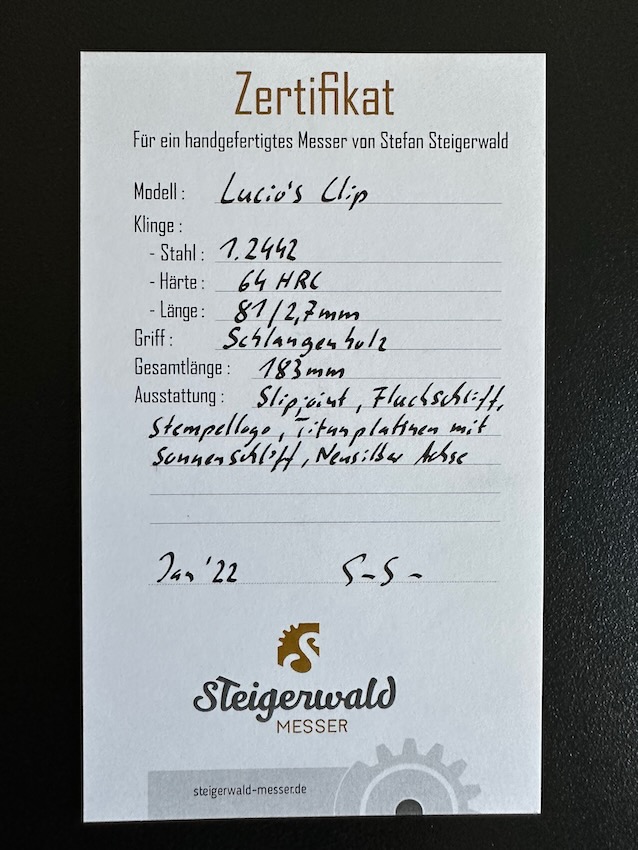 Zertifikat
Für ein handgefertigtes Messer von Stefan Steigerwald
Modell : Lucio's Clip
Klinge :
- Stahl : 1.2442
- Härte : 64 HRC
- Länge : 81/2,7mm
Griff : Schlangenholz
Gesamtlänge : 183mm
Ausstattung : Slipjoint, Flachschliff,
Stempellogo, Titanplatinen mit
Sonnenschliff, Neusilber Achse
Jan '22 S-S-
Steigerwald
MESSER
steigerwald-messer.de